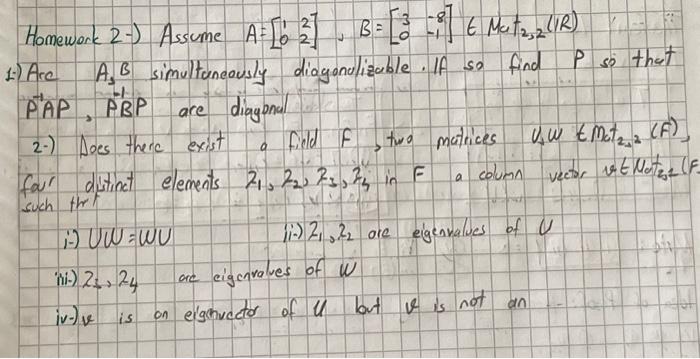 Homework 2-) Assume A=[1 2 0 2], B=[3 -8 0 -1] ∈ Mat₂,₂(IR)
1-) Are A,B simultaneously diagonalizable. If so find P so that
P⁻¹AP, P⁻¹BP are diagonal
2-) Does there exist a field F, two matrices U,W ∈ Mat₂,₂(F),
four distinct elements λ₁, λ₂, λ₃, λ₄ in F a column vector v ∈ Mat₂,₁(F
such that
i-) UW=WU ii-) λ₁, λ₂ are eigenvalues of U
iii-) λ₃, λ₄ are eigenvalues of W
iv-) v is an eigenvector of U but v is not an